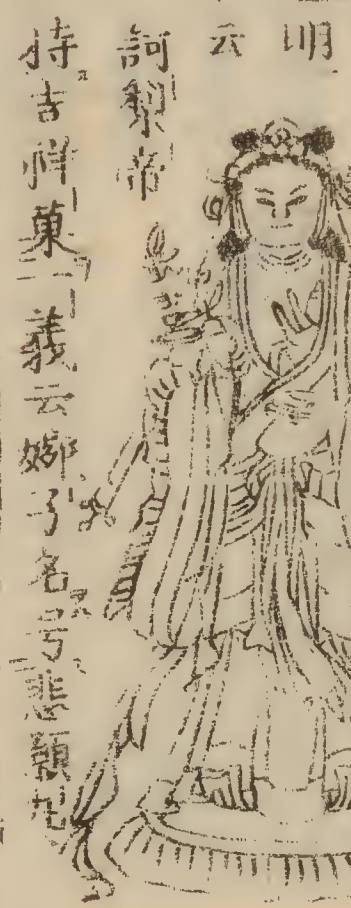 明
云
訶梨帝
持吉祥菓一義云嫏子名号悲願也